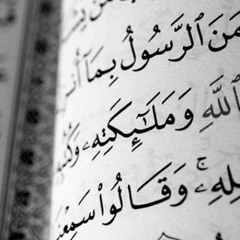 مَنَ ٱلرَّسُولُ بِمَآ أُنزِ
ٱللَّهِ وَمَلَٰٓئِكَتِهِۦ وَكُتُبِ
لِهِۦۚ وَقَالُوا۟ سَمِعْنَ